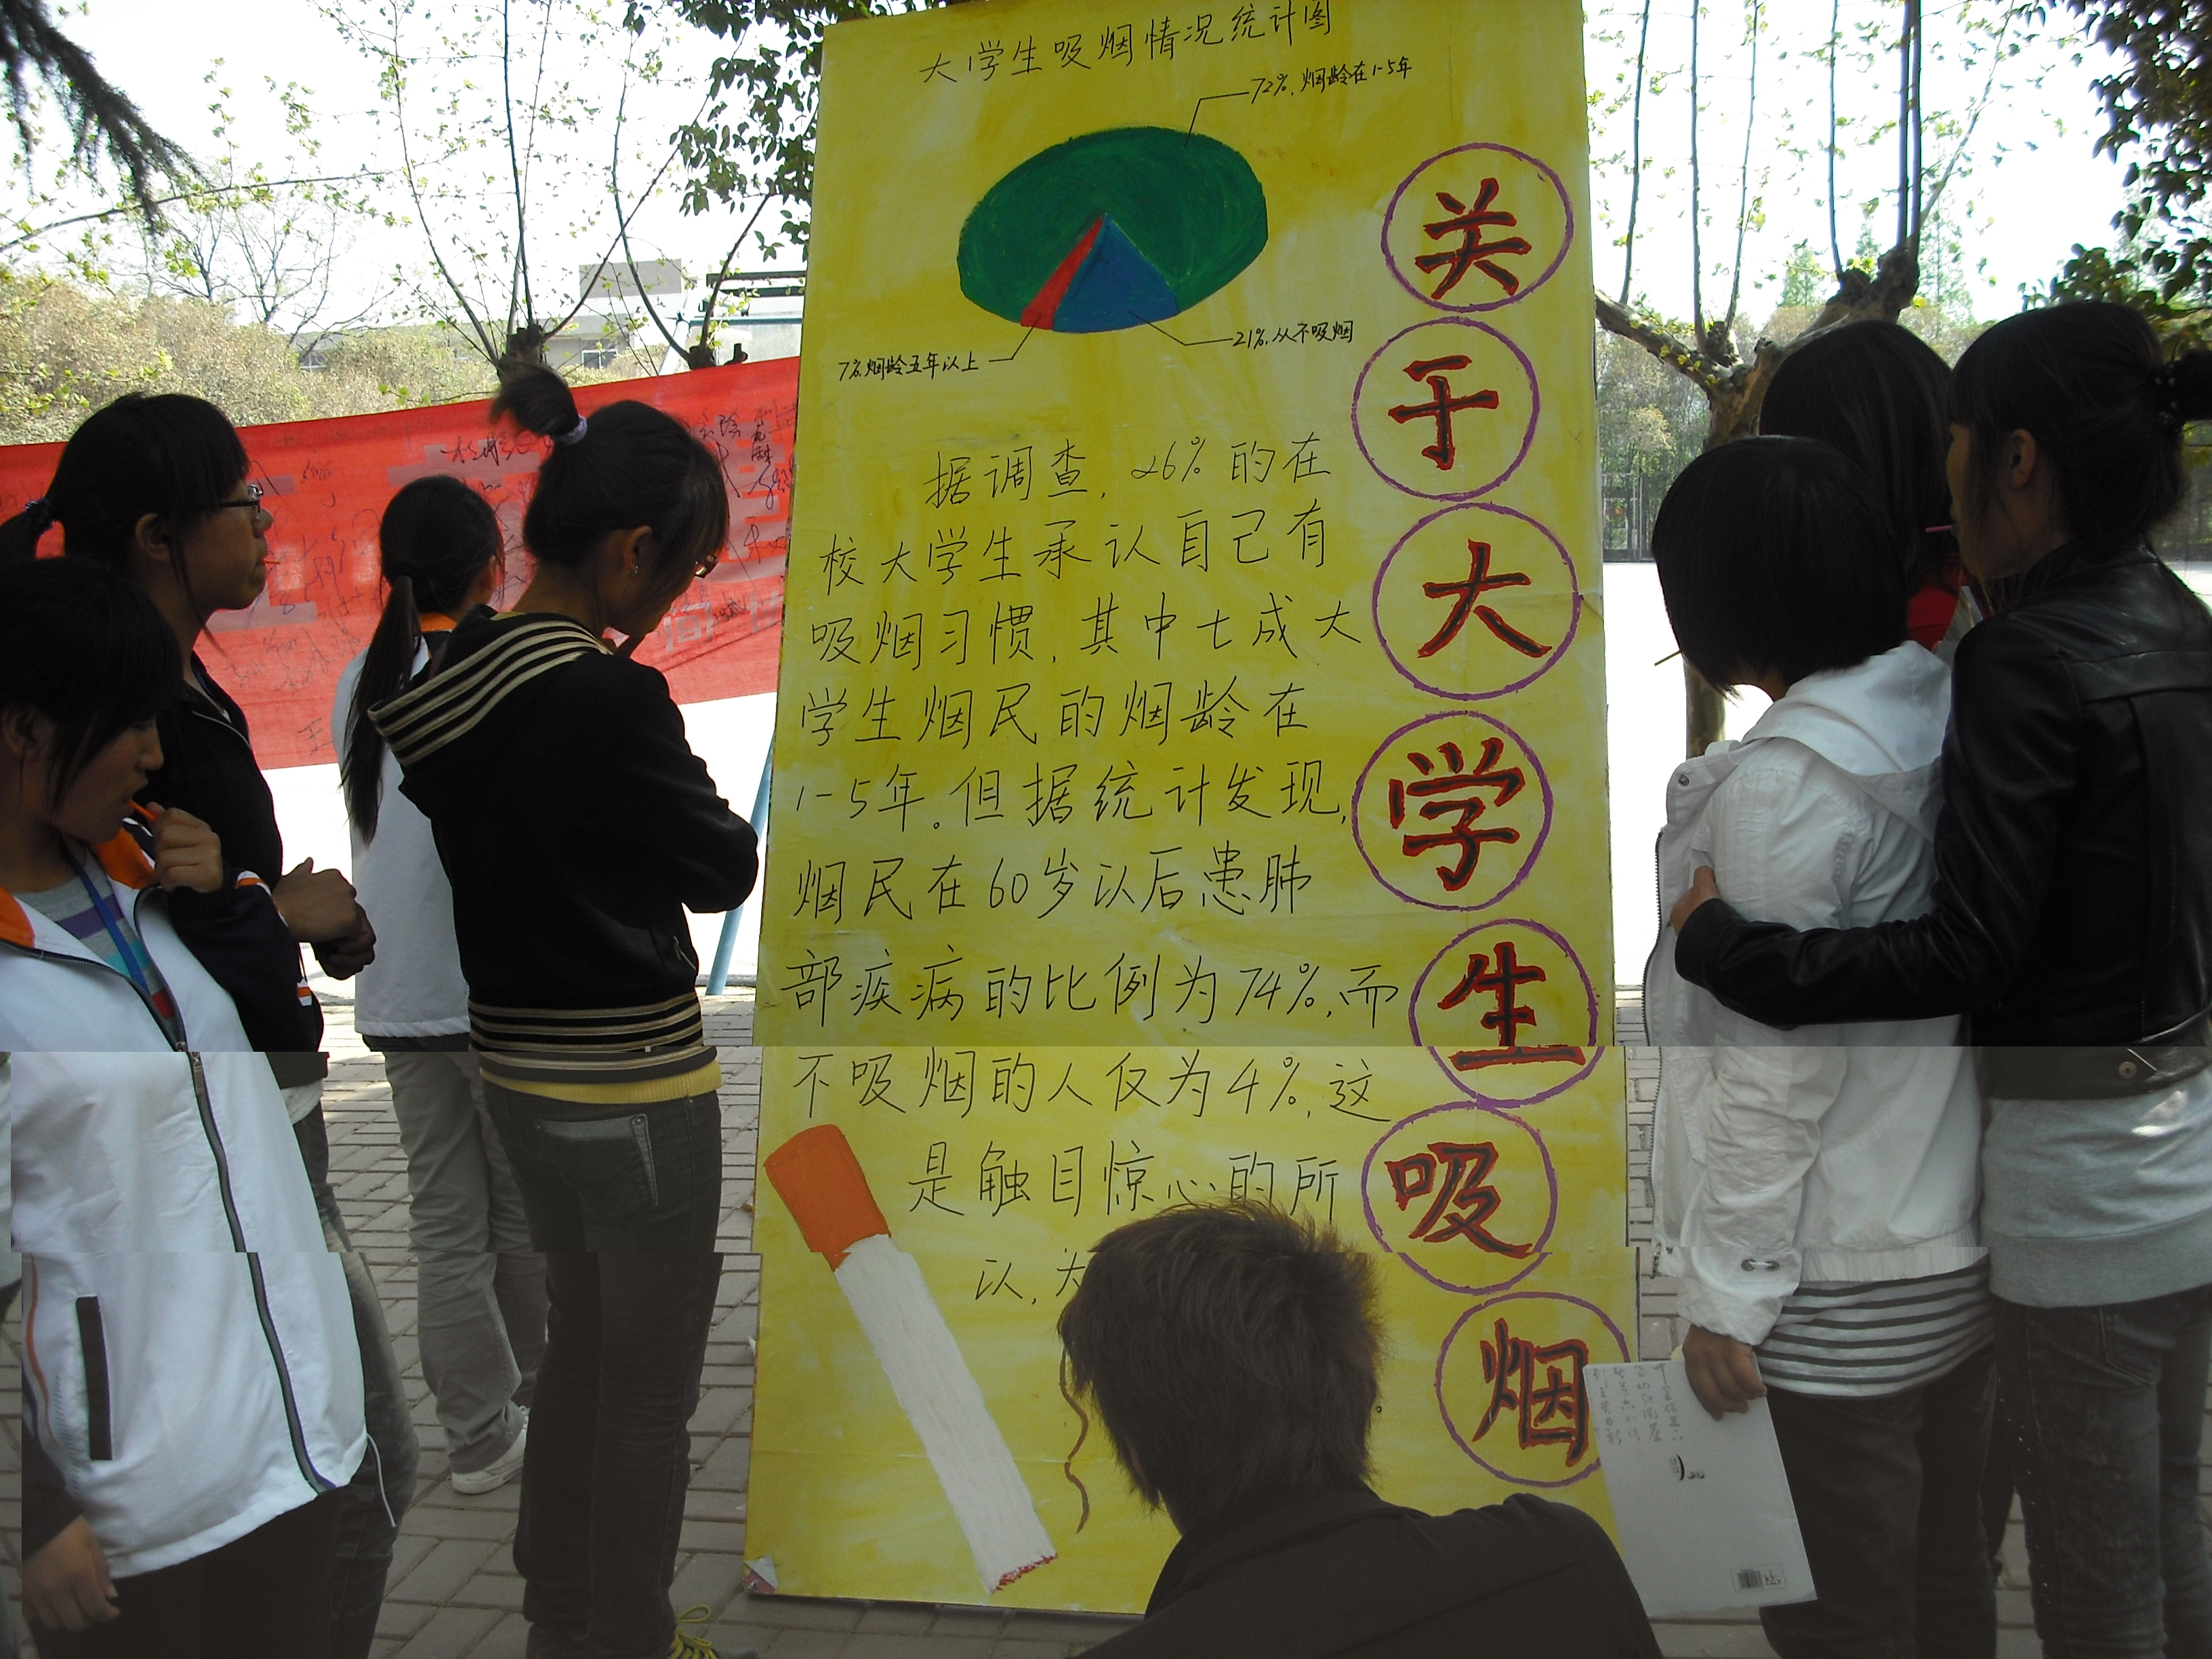 大学生吸烟情况统计图
72%,烟龄在1-5年
7%烟龄五年以上
21%,从不吸烟
据调查,26%的在
校大学生承认自己有
吸烟习惯,其中七成大
学生烟民的烟龄在
1-5年。但据统计发现,
烟民在60岁以后患肺
部疾病的比例为74%,而
不吸烟的人仅为4%,这
是触目惊心的所
以,大
关于大学生吸烟